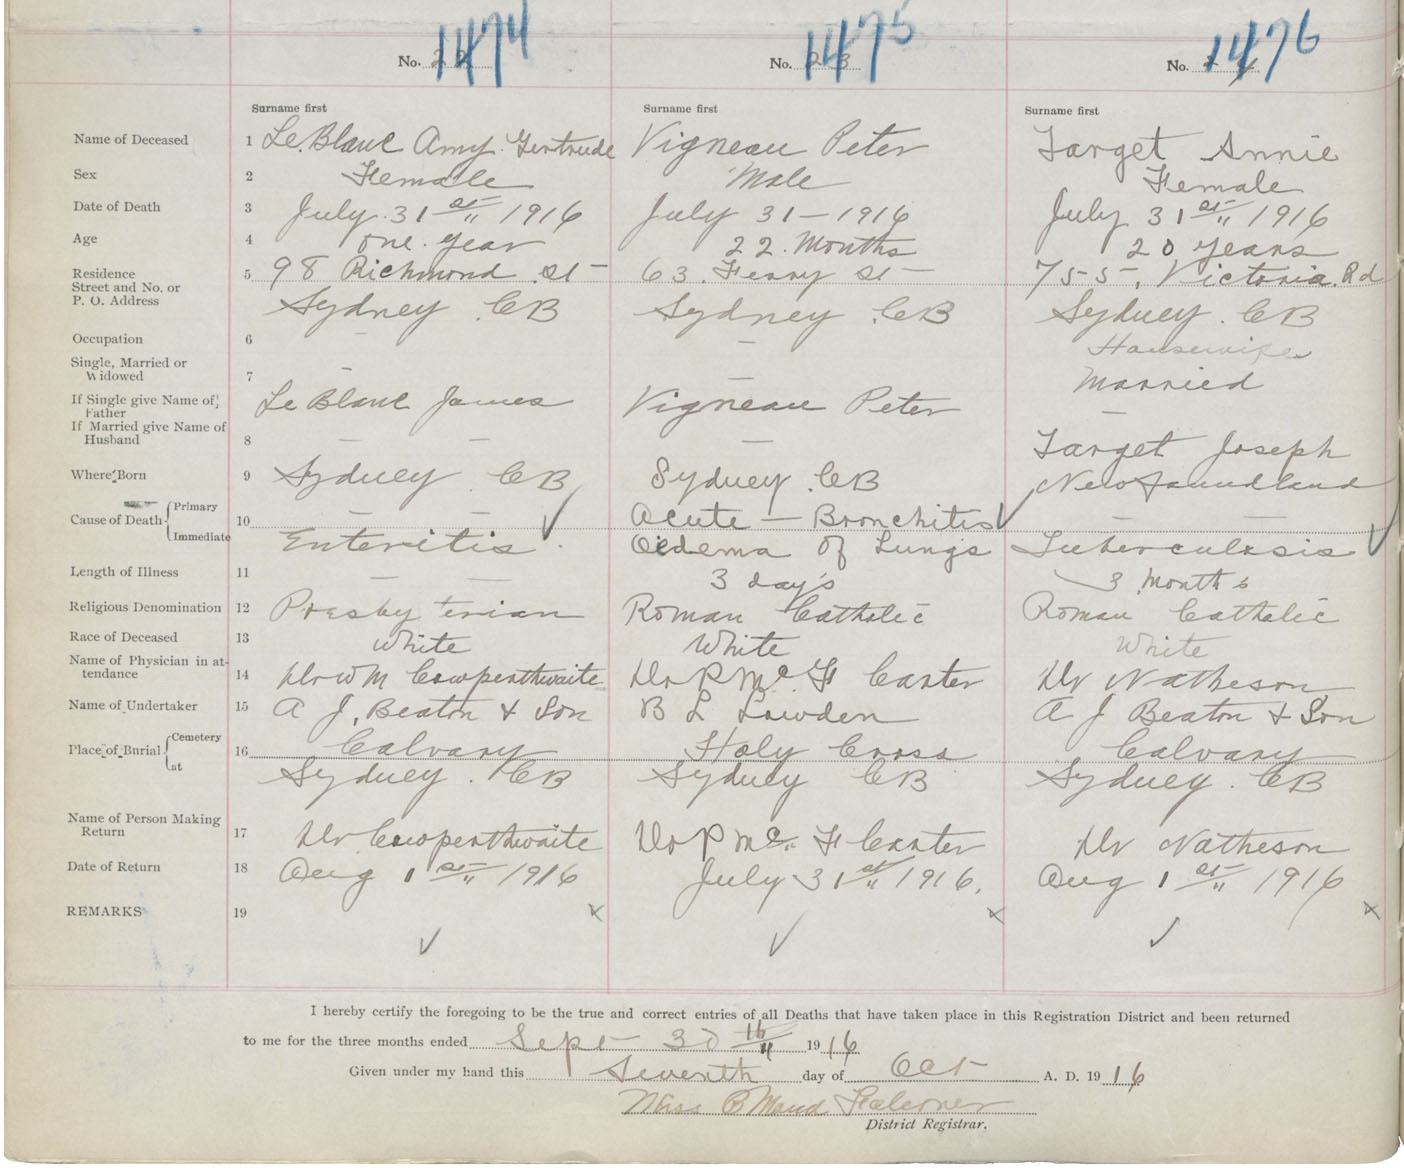 1474 1475 1476
No. 22 No. 23 No.
Surname first Surname first Surname first
Name of Deceased 1 Le Blanc Amy Gertrude Vigneau Peter Target Annie
Sex 2 Female Male Female
Date of Death 3 July 31st 1916 July 31 - 1916 July 31st 1916
Age 4 one year 22 Months 20 years
Residence Street and No. or P. O. Address 5 98 Richmond St 63 Ferry St 755, Victoria Rd
Sydney CB Sydney CB Sydney CB
Occupation 6 - - Housewife
Single, Married or Widowed 7 - - Married
If Single give Name of Father Le Blanc James Vigneau Peter -
If Married give Name of Husband 8 - - - Target Joseph
Where Born 9 Sydney CB Sydney CB Newfoundland
Cause of Death Primary 10 - - Acute - Bronchitis - -
Immediate Enteritis Oedema of Lungs Tuberculosis
Length of Illness 11 - - 3 day's 3 Months
Religious Denomination 12 Presbyterian Roman Catholic Roman Catholic
Race of Deceased 13 White White White
Name of Physician in attendance 14 Dr W M Cowperthwaite Dr P Mc F Carter Dr Natheson
Name of Undertaker 15 A J. Beaton & Son B L Lowden A J Beaton & Son
Place of Burial Cemetery 16 Calvary Holy Cross Calvary
at Sydney CB Sydney CB Sydney CB
Name of Person Making Return 17 Dr Cowperthwaite Dr P Mc F Carter Dr Natheson
Date of Return 18 Aug 1st 1916 July 31st 1916. Aug 1st 1916
REMARKS 19
I hereby certify the foregoing to be the true and correct entries of all Deaths that have taken place in this Registration District and been returned
to me for the three months ended Sept 30th 1916
Given under my hand this Seventh day of Oct A. D. 1916
Miss B Maud Falconer
District Registrar.